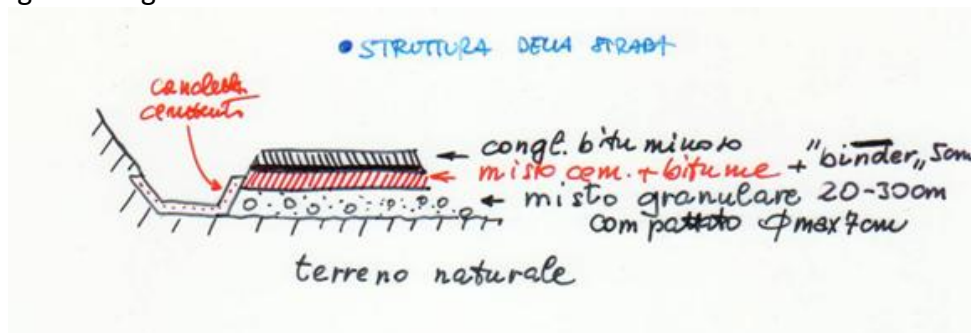 • STRUTTURA DELLA STRADA
canaletta
cemento
congl. bituminoso
+ "binder" 5cm
misto cem. + bitume
misto granulare 20-30cm
compattato Φmax 7cm
terreno naturale